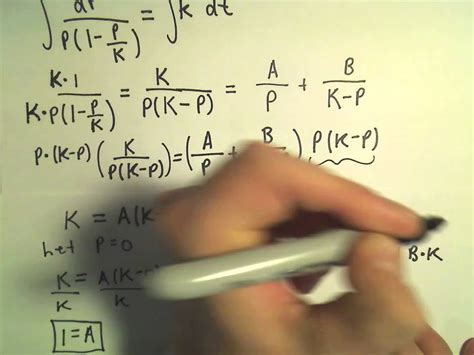 ∫ dP / P(1-P/K) = ∫ k dt
K·1 / K·P(1-P/K) = K / P(K-P) = A/P + B/K-P
P·(K-P) (K / P(K-P)) = (A/P + B ) P(K-P)
K = A(K
let P=0
K/K = A(K- /K
B·K
1=A